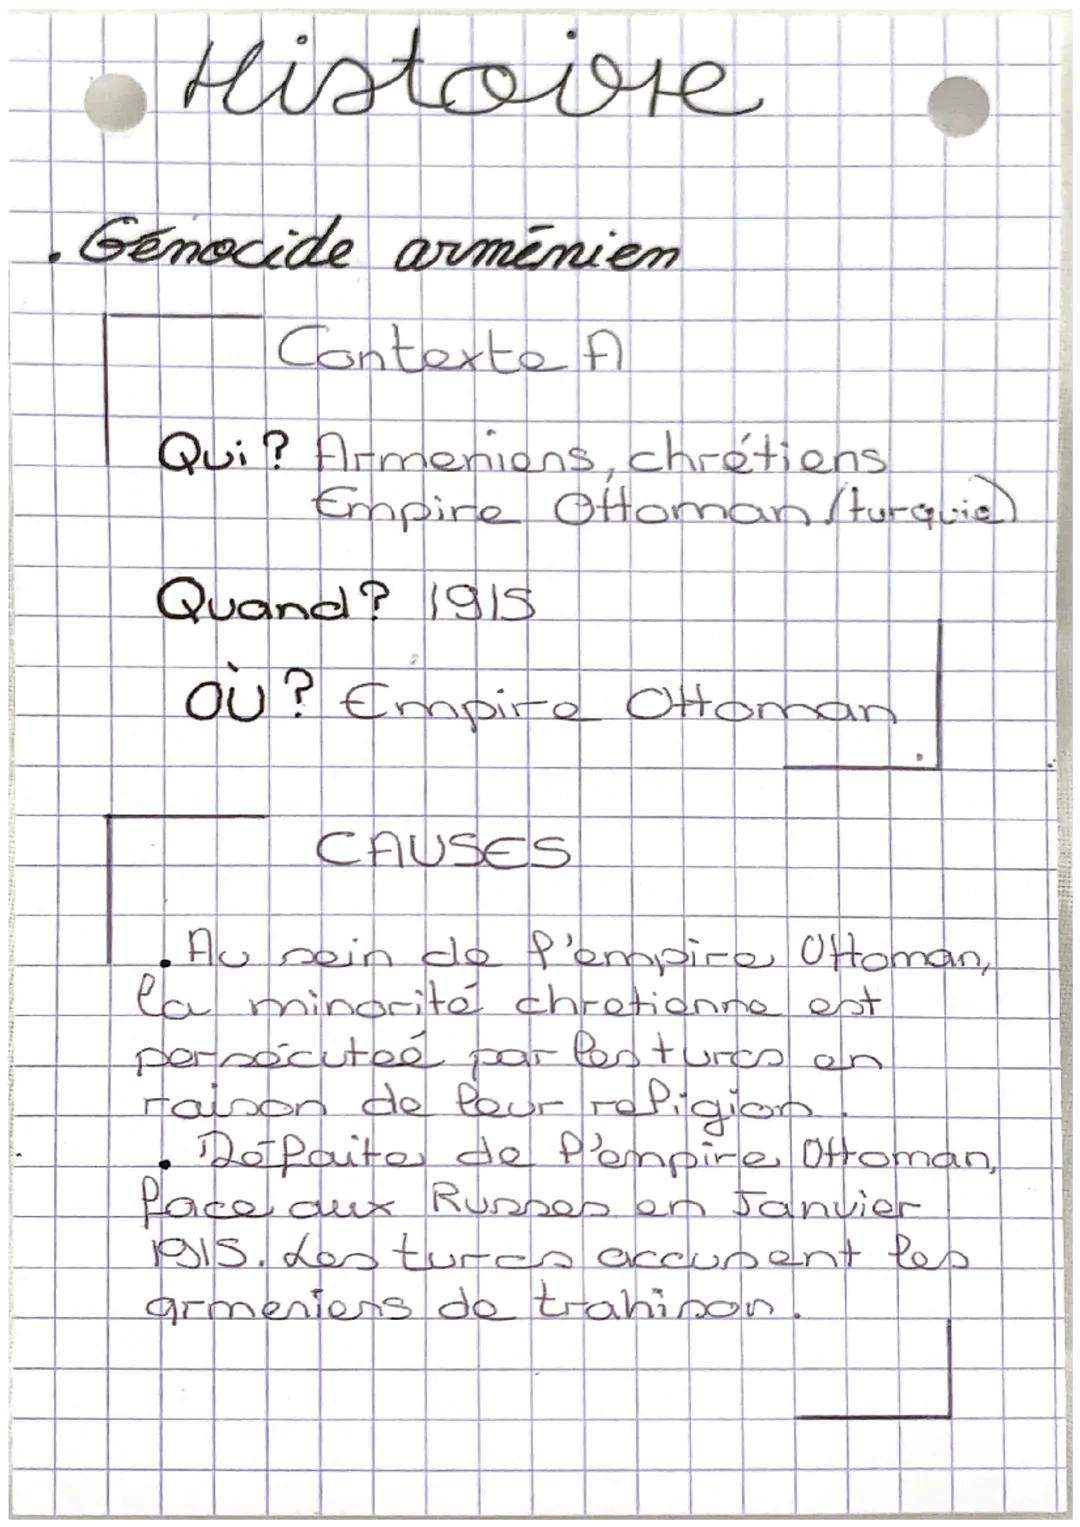 Histoire
. Génocide arménien
Contexte A
Qui ? Armeniens, chrétiens
Empire Ottoman (turquie)
Quand ? 1915
OÙ ? Empire Ottoman
CAUSES
. Au sein de l'empire Ottoman,
la minorité chretienne est
persécuteé par les turcs en
raison de leur religion.
. Défaite de l'empire Ottoman,
face aux Russes en Janvier
1915. Les turcs accusent les
armeniens de trahison.